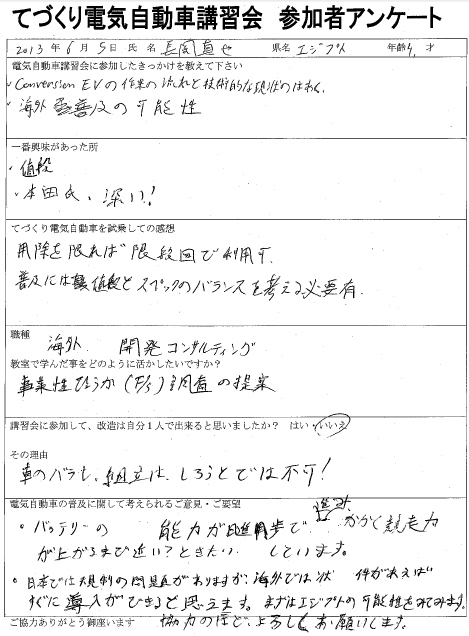 てづくり電気自動車講習会 参加者アンケート
2013年6月5日 氏名 長岡直也 県名 エジプト 年齢 才
電気自動車講習会に参加したきっかけを教えて下さい
・Conversion EVの作業の流れと技術的な
・海外 普及の可能性
一番興味があった所
・値段
・本田氏、深い!
てづくり電気自動車を試乗しての感想
用除を限れば 限段回で利用可
普及には 値段とスペックのバランスを考える必要有.
職種
海外 開発コンサルティング
教室で学んだ事をどのように活かしたいですか?
事業性ひょうか(F/S)調査の提案
講習会に参加して、改造は自分1人で出来ると思いましたか? はい・いいえ
その理由
車のバラも、組立は、しろうとでは不可!
電気自動車の普及に関して考えられるご意見・ご要望
・バッテリーの 能力が日進月歩で 進み かかく競走力
が上がるまで近い?ときたい しています。
・日本では規制の問題がありますが、海外では状 件があえば
すぐに導入ができると思えます。まずはエジプトの可能性をみてみます。
ご協力ありがとう御座います 協力のほど、よろしくお願いします。